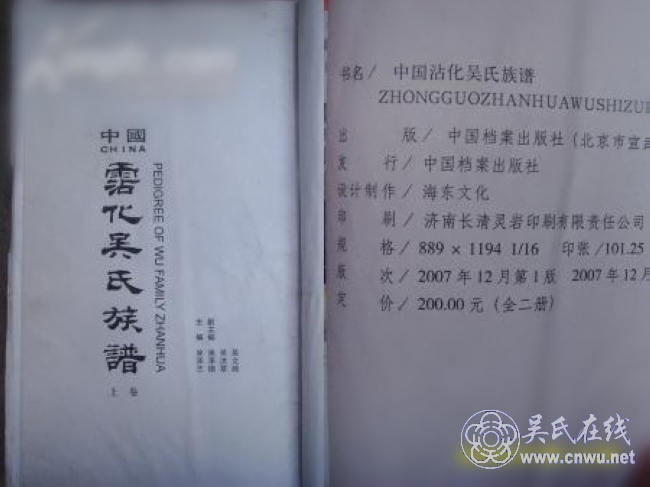 中國
CHINA
霑化吴氏族譜
PEDIGREE OF WU FAMILY ZHANHUA
上卷
主编
副主编
书名/ 中国沾化吴氏族谱
ZHONGGUOZHANHUAWUSHIZU
出 版/ 中国档案出版社(北京市宣武
发 行/ 中国档案出版社
设计制作/ 海东文化
印 刷/ 济南长清灵岩印刷有限责任公司
规 格/ 889 × 1194 1/16 印张/101.25
版 次/ 2007年12月第1版 2007年12月
定 价/ 200.00元(全二册)
吴氏在线
www.cnwu.net